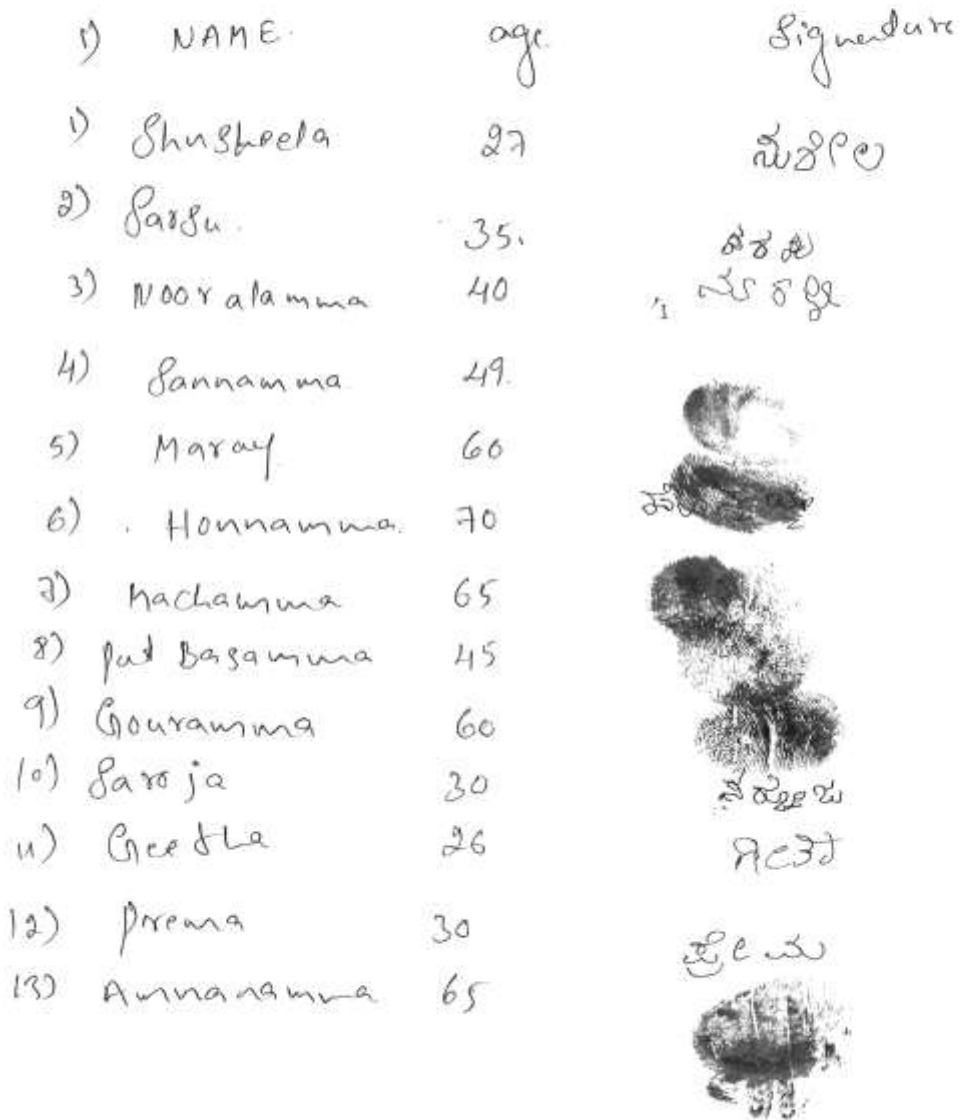 1) NAME. age. Signature
1) Shusheela 27 ಸುಶೀಲ
2) Sarsu. 35. ಸರಸು
3) Nooralamma 40
4) Sannamma 49.
5) Maray 60
6) . Honnamma. 70
7) Machamma 65
8) put Basamma 45
9) Gouramma 60
10) Saroja 30 ಸರೋಜ
11) Geetha 26 ಗೀತಾ
12) Prema 30 ಪ್ರೇಮ
13) Annanamma 65